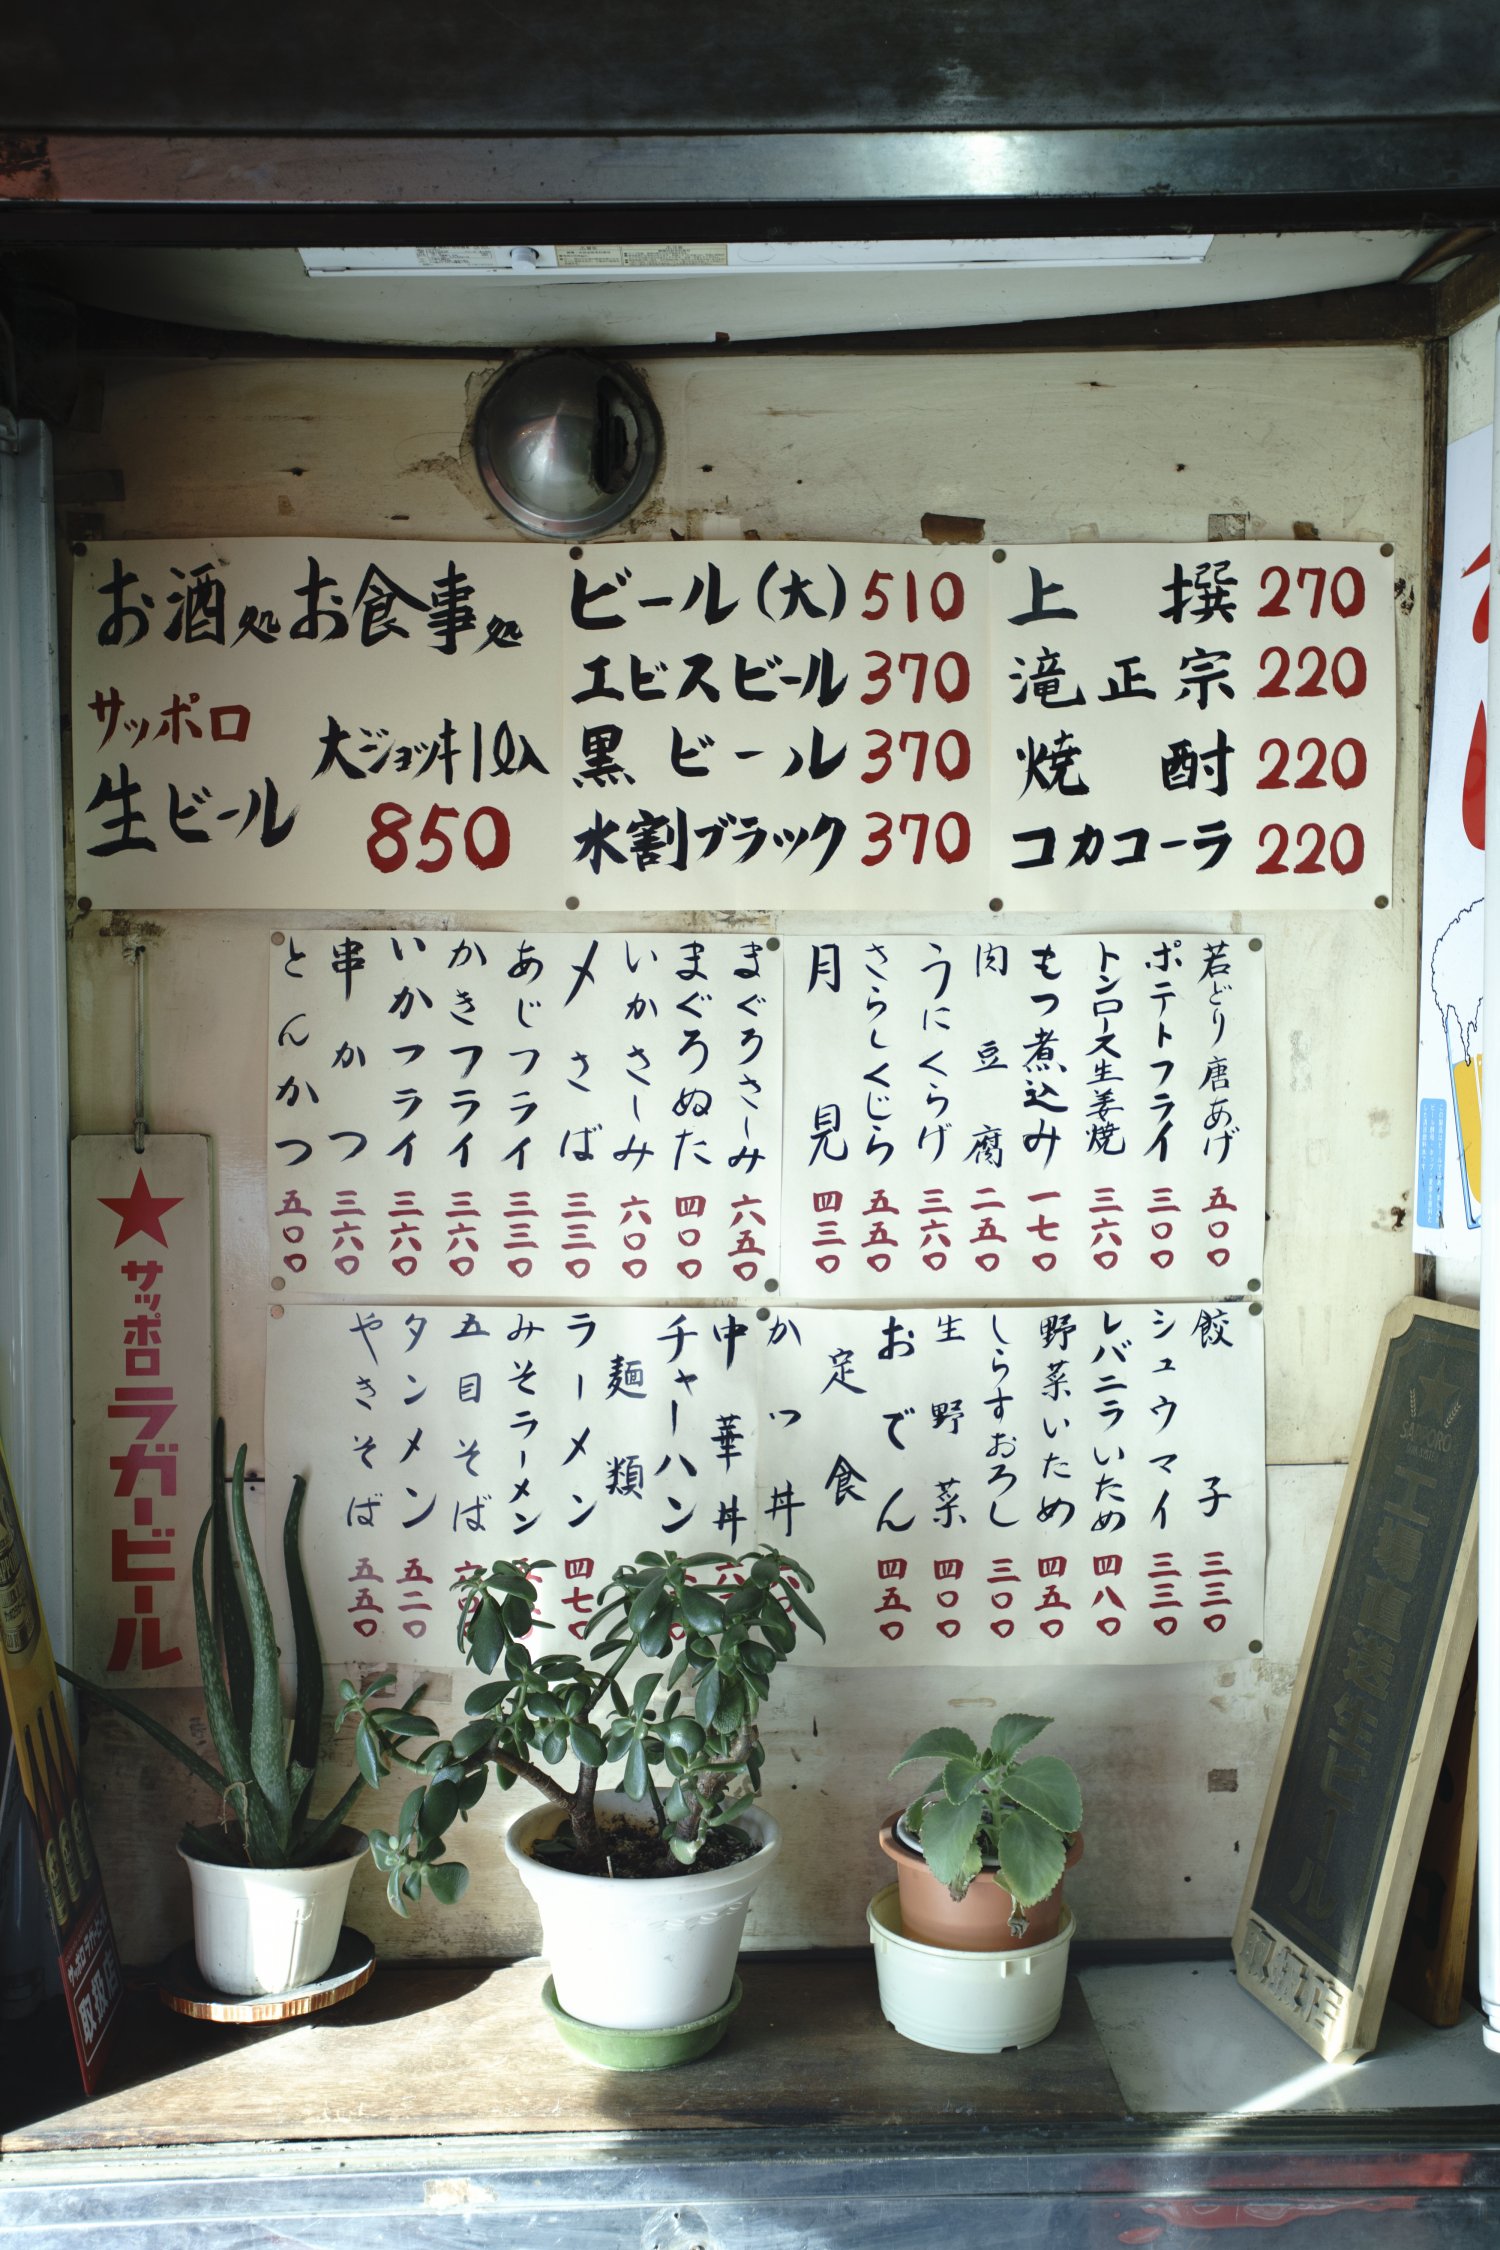 お酒処お食事処
サッポロ
生ビール
大ジョッキ1ℓ入
850
ビール(大) 510
エビスビール 370
黒ビール 370
水割ブラック 370
上撰 270
滝正宗 220
焼酎 220
コカコーラ 220
若どり唐あげ 五〇〇
ポテトフライ 三〇〇
トンロース生姜焼 三六〇
もつ煮込み 一七〇
肉豆腐 二五〇
うにくらげ 三六〇
さらしくじら 五五〇
月見 四三〇
まぐろさしみ 六五〇
まぐろぬた 四〇〇
いかさしみ 六〇〇
〆さば 三三〇
あじフライ 三三〇
かきフライ 三六〇
いかフライ 三六〇
串かつ 三六〇
とんかつ 五〇〇
餃子 三三〇
シュウマイ 三三〇
レバニラいため 四八〇
野菜いため 四五〇
しらすおろし 三〇〇
生野菜 四〇〇
おでん 四五〇
定食
かつ丼
中華丼
チャーハン
麺類
ラーメン 四七〇
みそラーメン
五目そば
タンメン 五二〇
やきそば 五五〇
サッポロラガービール
SAPPORO
工場直送生ビール
取扱店
サッポロラガービール
取扱店